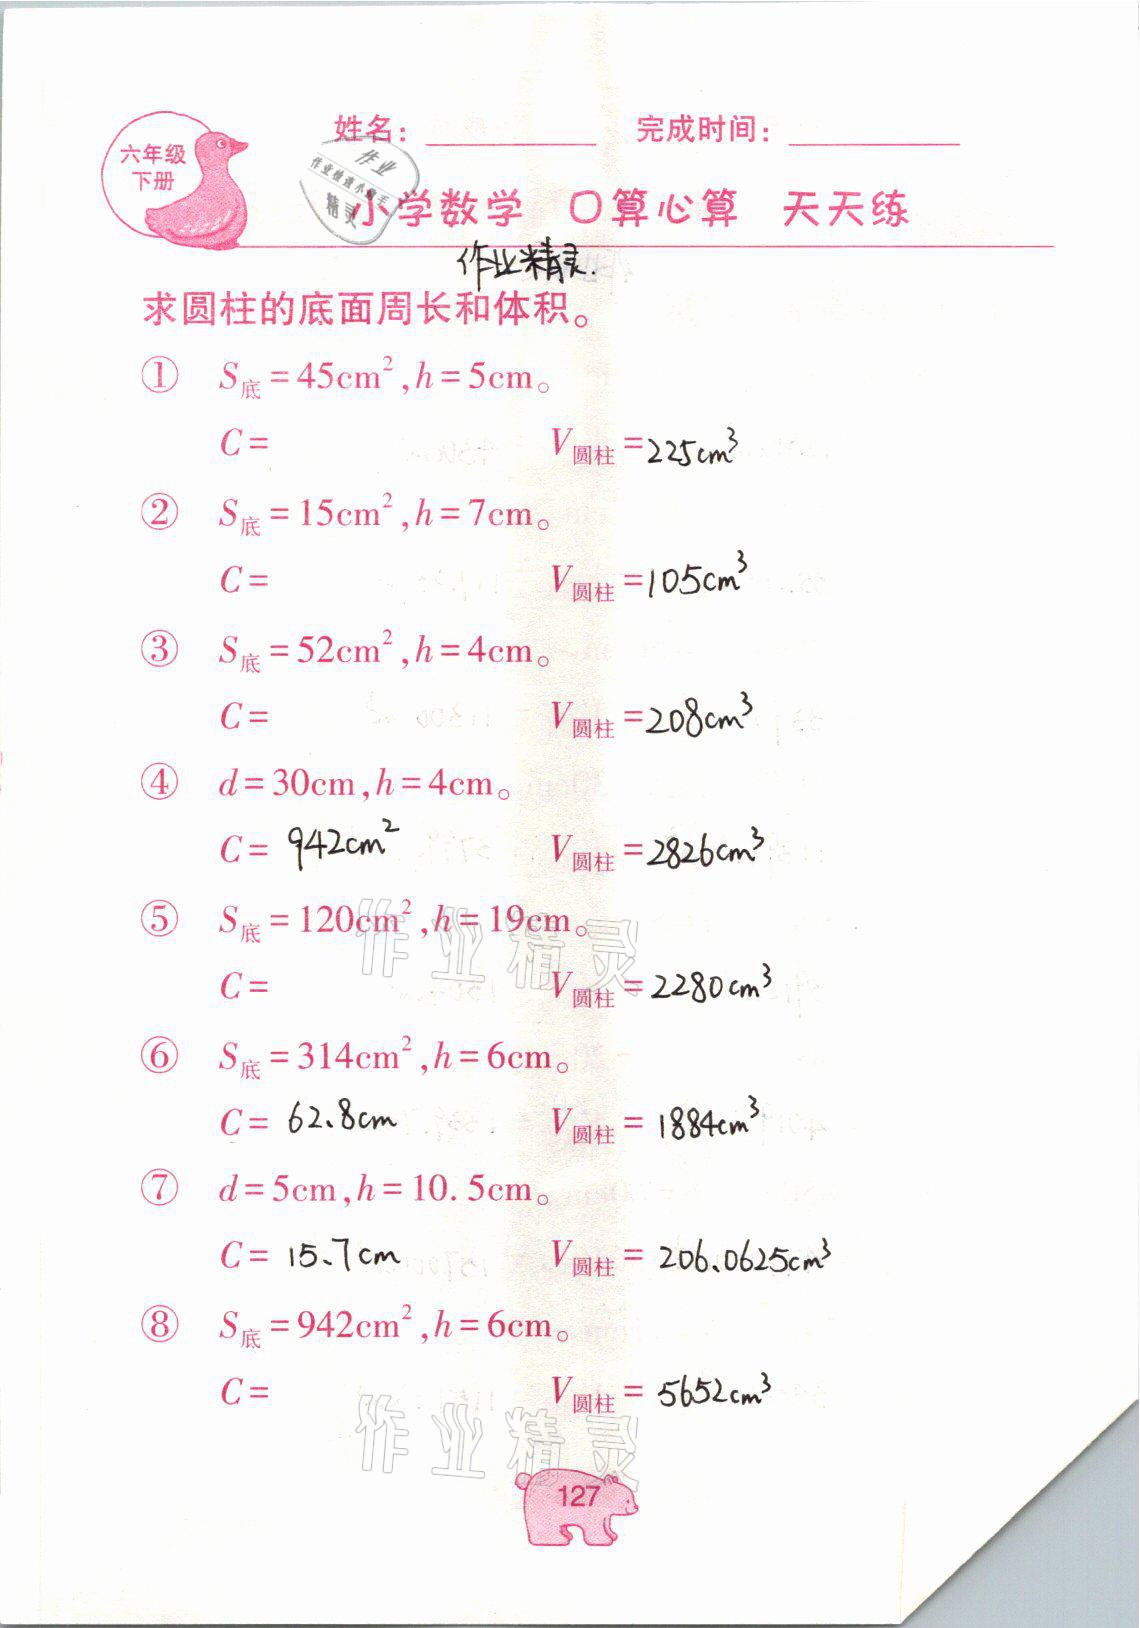 六年级
下册
姓名：
完成时间：
作业
作业检查小助手
精灵
小学数学 口算心算 天天练
作业精灵.
求圆柱的底面周长和体积。
① S底=45cm²,h=5cm。
C= V圆柱=225cm³
② S底=15cm²,h=7cm。
C= V圆柱=105cm³
③ S底=52cm²,h=4cm。
C= V圆柱=208cm³
④ d=30cm,h=4cm。
C= 942cm² V圆柱=2826cm³
⑤ S底=120cm²,h=19cm。
作业精灵
C= V圆柱=2280cm³
⑥ S底=314cm²,h=6cm。
C= 62.8cm V圆柱= 1884cm³
⑦ d=5cm,h=10.5cm。
C= 15.7cm V圆柱= 206.0625cm³
⑧ S底=942cm²,h=6cm。
C= V圆柱= 5652cm³
作业精灵
127